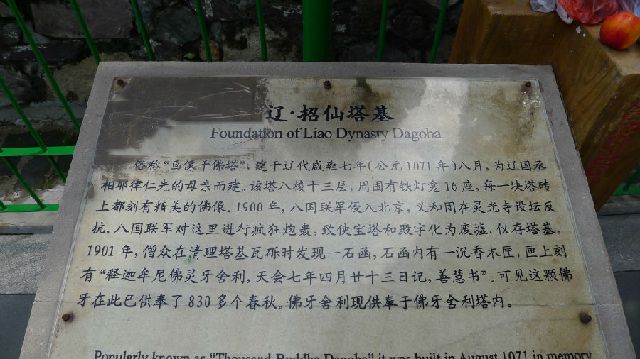 辽·招仙塔基
Foundation of Liao Dynasty Dagoba
俗称“画像千佛塔”，建于辽代咸雍七年（公元1071年）八月，为辽国丞
相耶律仁先的母亲而建。该塔八棱十三层，周围有铁灯龛16座，每一块塔砖
上都刻有精美的佛像。1900年，八国联军侵入北京，义和团在灵光寺设坛反
抗，八国联军对这里进行疯狂炮轰，致使宝塔和殿宇化为废墟，仅存塔基。
1901年，僧众在清理塔基瓦砾时发现一石函，石函内有一沉香木匣，匣上刻
有“释迦牟尼佛灵牙舍利，天会七年四月廿十三日记，善慧书”。可见这颗佛
牙在此已供奉了830多个春秋。佛牙舍利现供奉于佛牙舍利塔内。
Popularly known as "Thousand Buddha Dagoba" it was built in August 1071 in memory